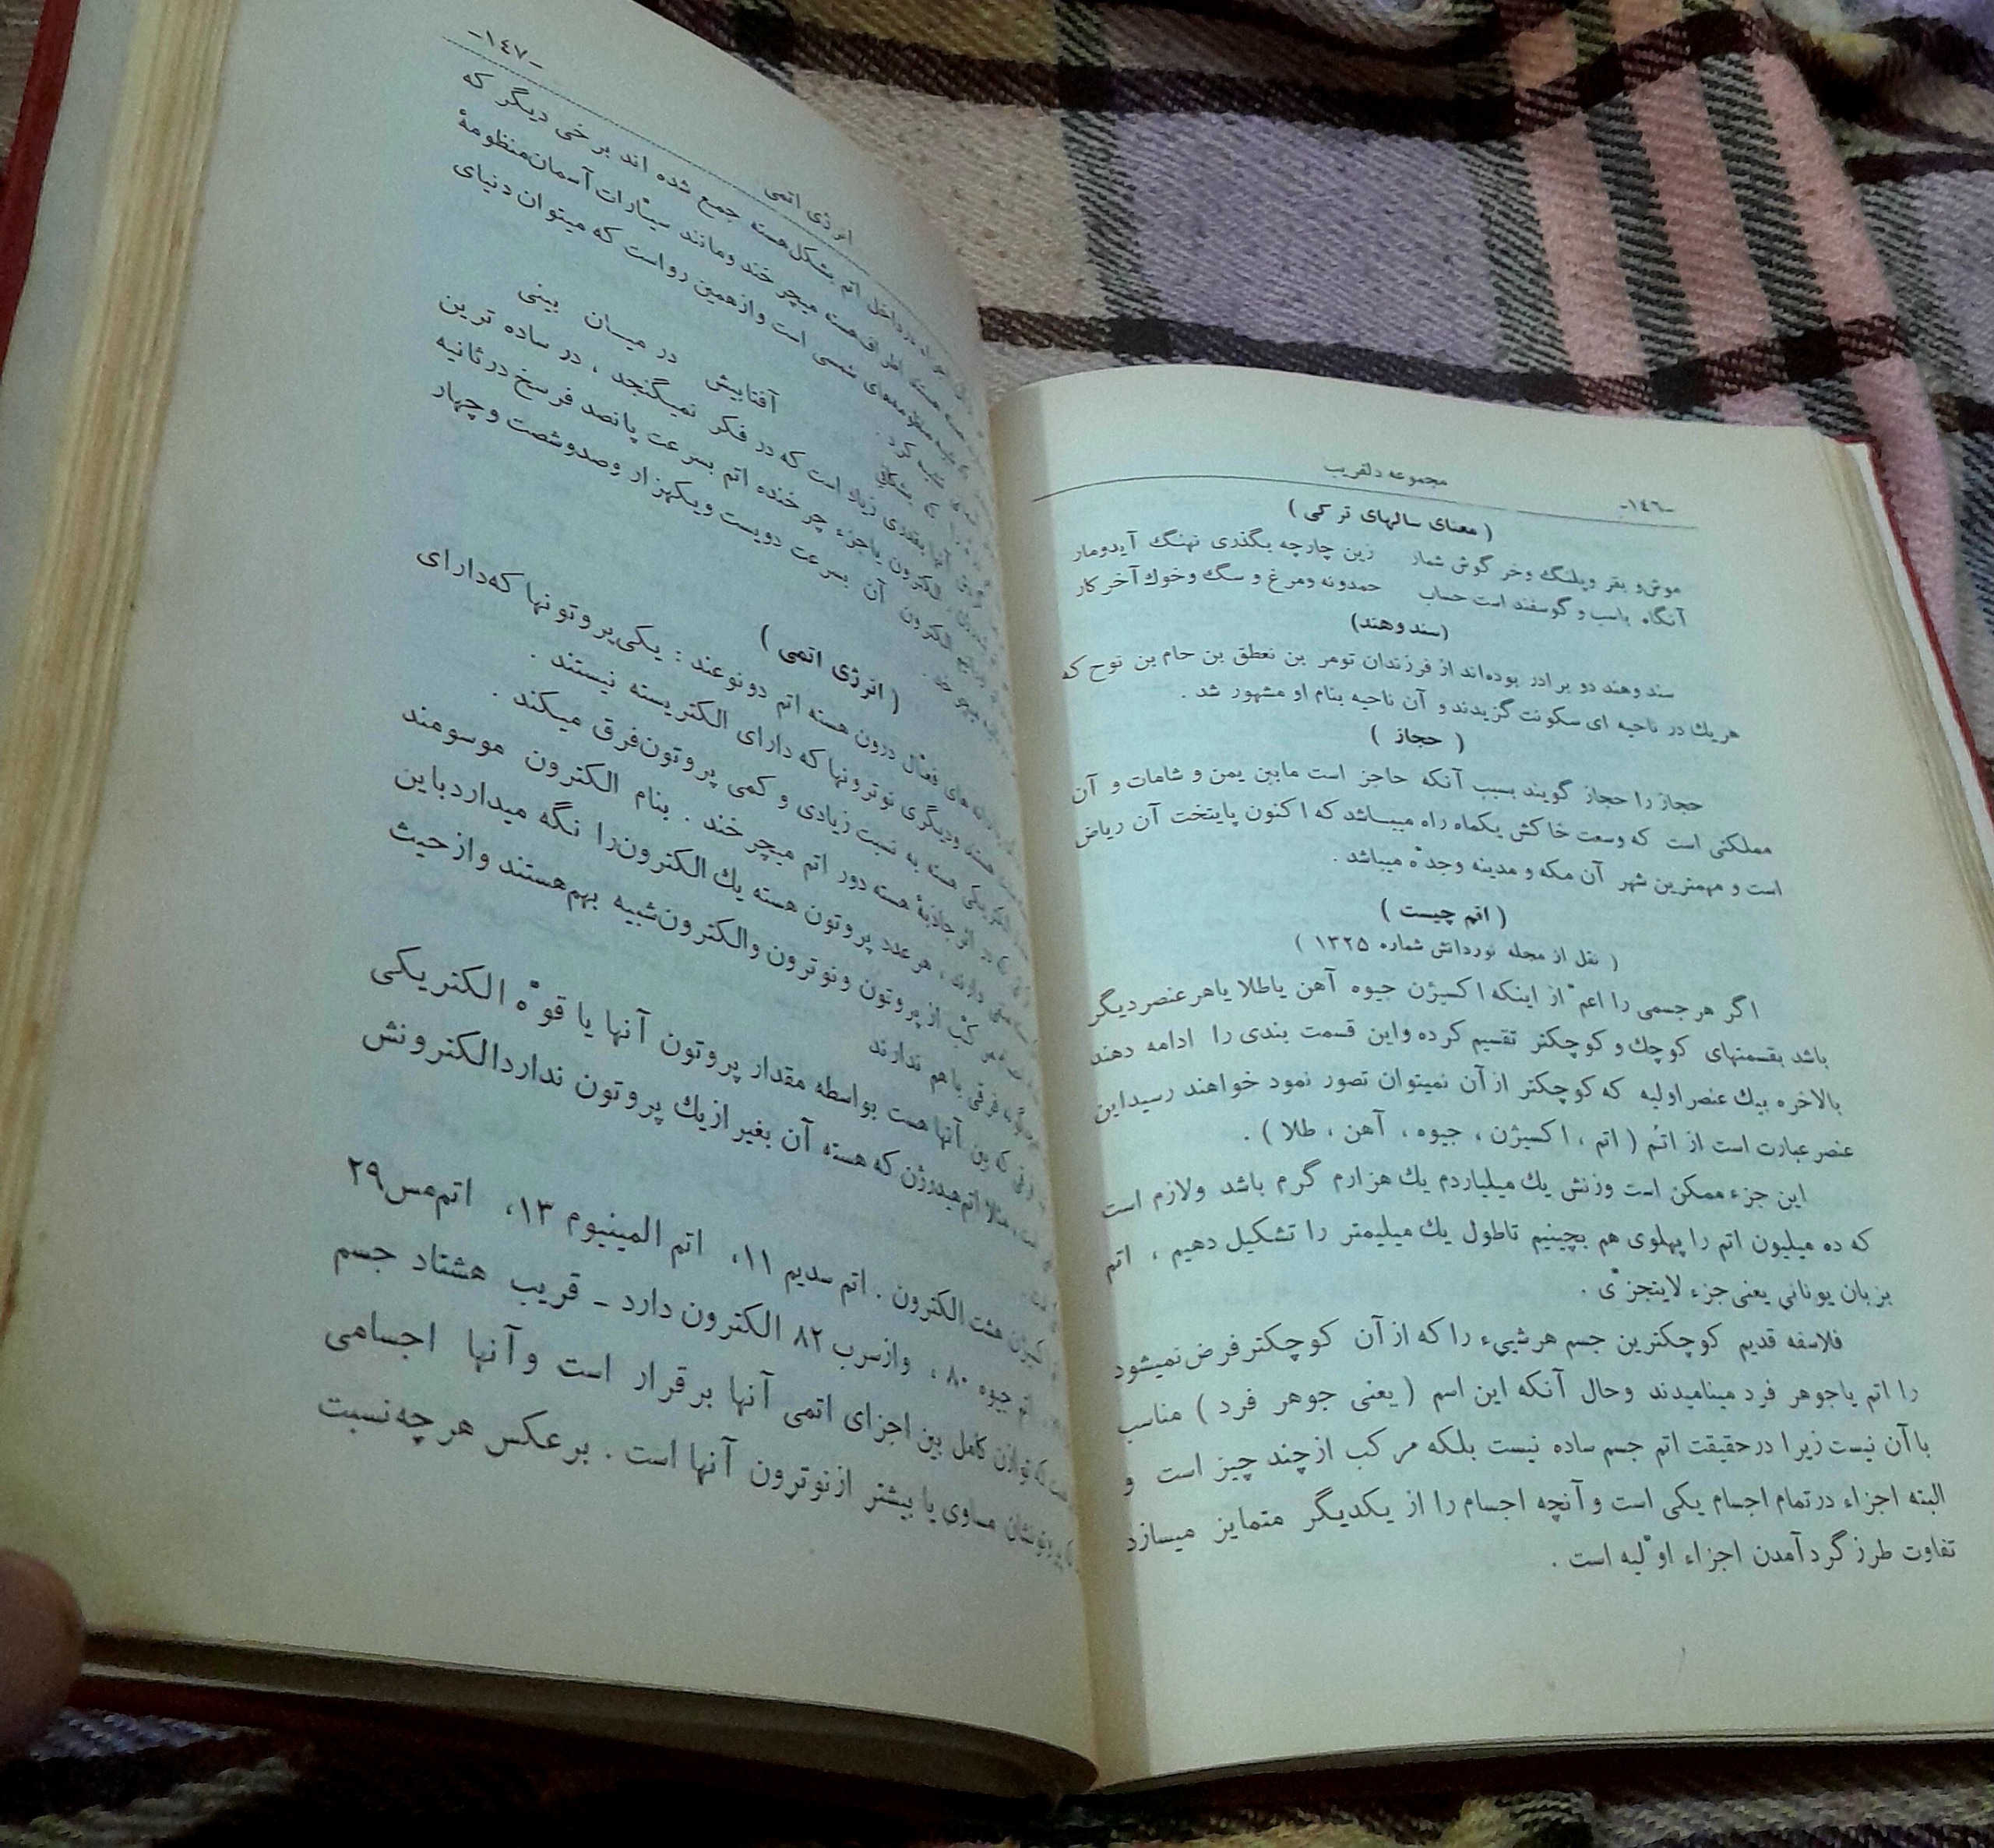 -١٤٦-
مجموعه دلفریب
( معنای سالهای ترکی )
موش و بقر و پلنگ و خرگوش شمار زین چارچه بگذری نهنگ آید و مار
آنگاه باسب و گوسفند است حساب حمدونه و مرغ و سگ و خوك آخر کار
(سند و هند)
سند و هند دو برادر بوده‌اند از فرزندان تومر بن نعطق بن حام بن نوح که
هریك در ناحیه ای سکونت گزیدند و آن ناحیه بنام او مشهور شد .
( حجاز )
حجاز را حجاز گویند بسبب آنکه حاجز است مابین یمن و شامات و آن
مملکتی است که وسعت خاکش یکماه راه میباشد که اکنون پایتخت آن ریاض
است و مهمترین شهر آن مکه و مدینه و جدّه میباشد .
( اتم چیست )
( نقل از مجله نوردانش شماره ۱۳۲۵ )
اگر هر جسمی را اعمّ از اینکه اکسیژن جیوه آهن یاطلا یاهر عنصر دیگر
باشد بقسمتهای کوچك و کوچکتر تقسیم کرده واین قسمت بندی را ادامه دهند
بالاخره بیك عنصر اولیه که کوچکتر از آن نمیتوان تصور نمود خواهند رسید این
عنصر عبارت است از اتم ( اتم ، اکسیژن ، جیوه ، آهن ، طلا ) .
این جزء ممکن است وزنش یك میلیاردم یك هزارم گرم باشد ولازم است
که ده میلیون اتم را پهلوی هم بچینیم تاطول یك میلیمتر را تشکیل دهیم ، اتم
بزبان یونانی یعنی جزء لایتجزّی .
فلاسفه قدیم کوچکترین جسم هرشییء را که از آن کوچکتر فرض نمیشود
را اتم یاجوهر فرد مینامیدند وحال آنکه این اسم ( یعنی جوهر فرد ) مناسب
با آن نیست زیرا درحقیقت اتم جسم ساده نیست بلکه مرکب از چند چیز است و
البته اجزاء درتمام اجسام یکی است و آنچه اجسام را از یکدیگر متمایز میسازد
تفاوت طرز گردآمدن اجزاء اوّلیه است .
انرژی اتمی
-١٤٧-
در داخل اتم بشکل هسته جمع شده اند برخی دیگر که
هسته اطراف هسته میچرخند ومانند سیّارات آسمان منظومهٔ
شمسی است وازهمین رواست که میتوان دنیای
تشبیه کرد .
آفتابیش در میان بینی
آنها بقدری زیاد است که در فکر نمیگنجد ، در ساده ترین
الکترون یاجزء چرخنده اتم بسرعت پانصد فرسخ درثانیه
الکترون آن بسرعت دویست ویکهزار وصدوشصت وچهار
میچرخد .
( انرژی اتمی )
های فعّال درون هسته اتم دونوعند : یکی پروتونها که دارای
هستند ودیگری نوترونها که دارای الکتریسته نیستند .
الکتریکی هسته به نسبت زیادی و کمی پروتون فرق میکند .
در اثر جاذبهٔ هسته دور اتم میچرخند . بنام الکترون موسومند
منفی دارند ، هر عدد پروتون هسته یك الکترون را نگه میدارد باین
مرکّب از پروتون ونوترون والکترون شبیه بهم هستند واز حیث
فرقی باهم ندارند
که بین آنها هست بواسطه مقدار پروتون آنها یا قوّه الکتریکی
مثلا اتم هیدرژن که هسته آن بغیر از یك پروتون ندارد الکترونش
هشت الکترون . اتم سدیم ۱۱ ، اتم المینیوم ۱۳ ، اتم مس ۲۹
اتم جیوه ۸۰ ، وازسرب ۸۲ الکترون دارد - قریب هشتاد جسم
که توازن کامل بین اجزای اتمی آنها برقرار است و آنها اجسامی
پروتونشان مساوی یا بیشتر از نوترون آنها است . برعکس هرچه نسبت